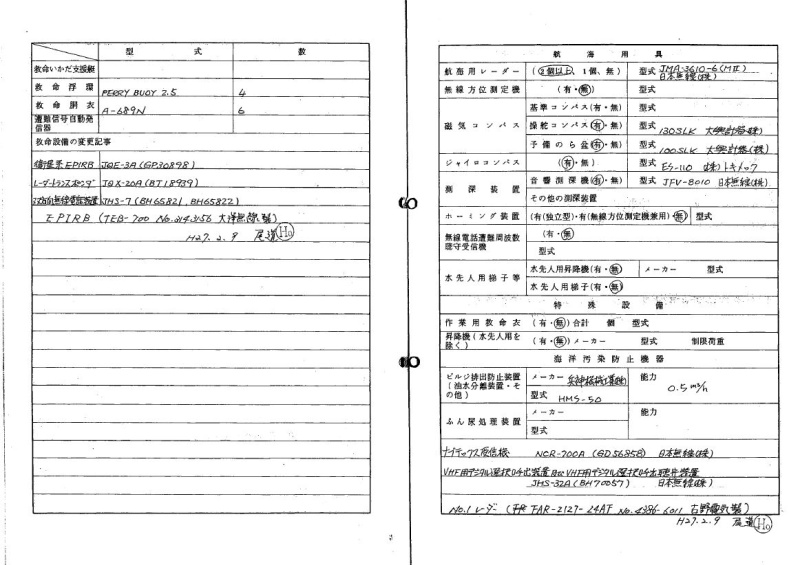 型式 数
救命いかだ支援艇
救命浮環 PERRY BUOY 2.5 4
救命胴衣 A-689N 6
遭難信号自動発信器
救命設備の変更記事
衛星系EPIRB JQE-3A (GP30898)
レーダートランスポンダ JQX-20A (BT18939)
双方向無線電話装置 JHS-7 (BH65821, BH65822)
EPIRB (TEB-700 大洋無線製)
H27.2.9 尾道 Ho
航海用具
航海用レーダー (2個以上、1個、無) 型式 JMA-3610-6(MII) 日本無線(株)
無線方位測定機 (有・無) 型式
磁気コンパス
基準コンパス(有・無) 型式
操舵コンパス(有・無) 型式 130SLK 大興計器(株)
予備のら盆(有・無) 型式 100SLK 大興計器(株)
ジャイロコンパス (有・無) 型式 ES-110 (株)トキメック
測深装置
音響測深機(有・無) 型式 JFV-8010 日本無線(株)
その他の測深装置
ホーミング装置 (有(独立型)・有(無線方位測定機兼用)・無) 型式
無線電話遭難周波数聴守受信機
(有・無)
型式
水先人用梯子等
水先人用昇降機(有・無) メーカー 型式
水先人用梯子(有・無)
特殊設備
作業用救命衣 (有・無)合計 個 型式
昇降機(水先人用を除く) (有・無)メーカー 型式 制限荷重
海洋汚染防止機器
ビルジ排出防止装置(油水分離装置・その他)
メーカー 能力 0.5m³/h
型式 HMS-50
ふん尿処理装置
メーカー 能力
型式
ナブテックス受信機 NCR-300A (GD56858) 日本無線(株)
VHF用デジタル選択呼出装置及びVHF用デジタル選択呼出聴守装置
JHS-32A (BH70057) 日本無線(株)
No.1 レーダー (FAR-2127-24AF No.4386-6011 古野電気製)
H27.2.9 尾道 Ho
2